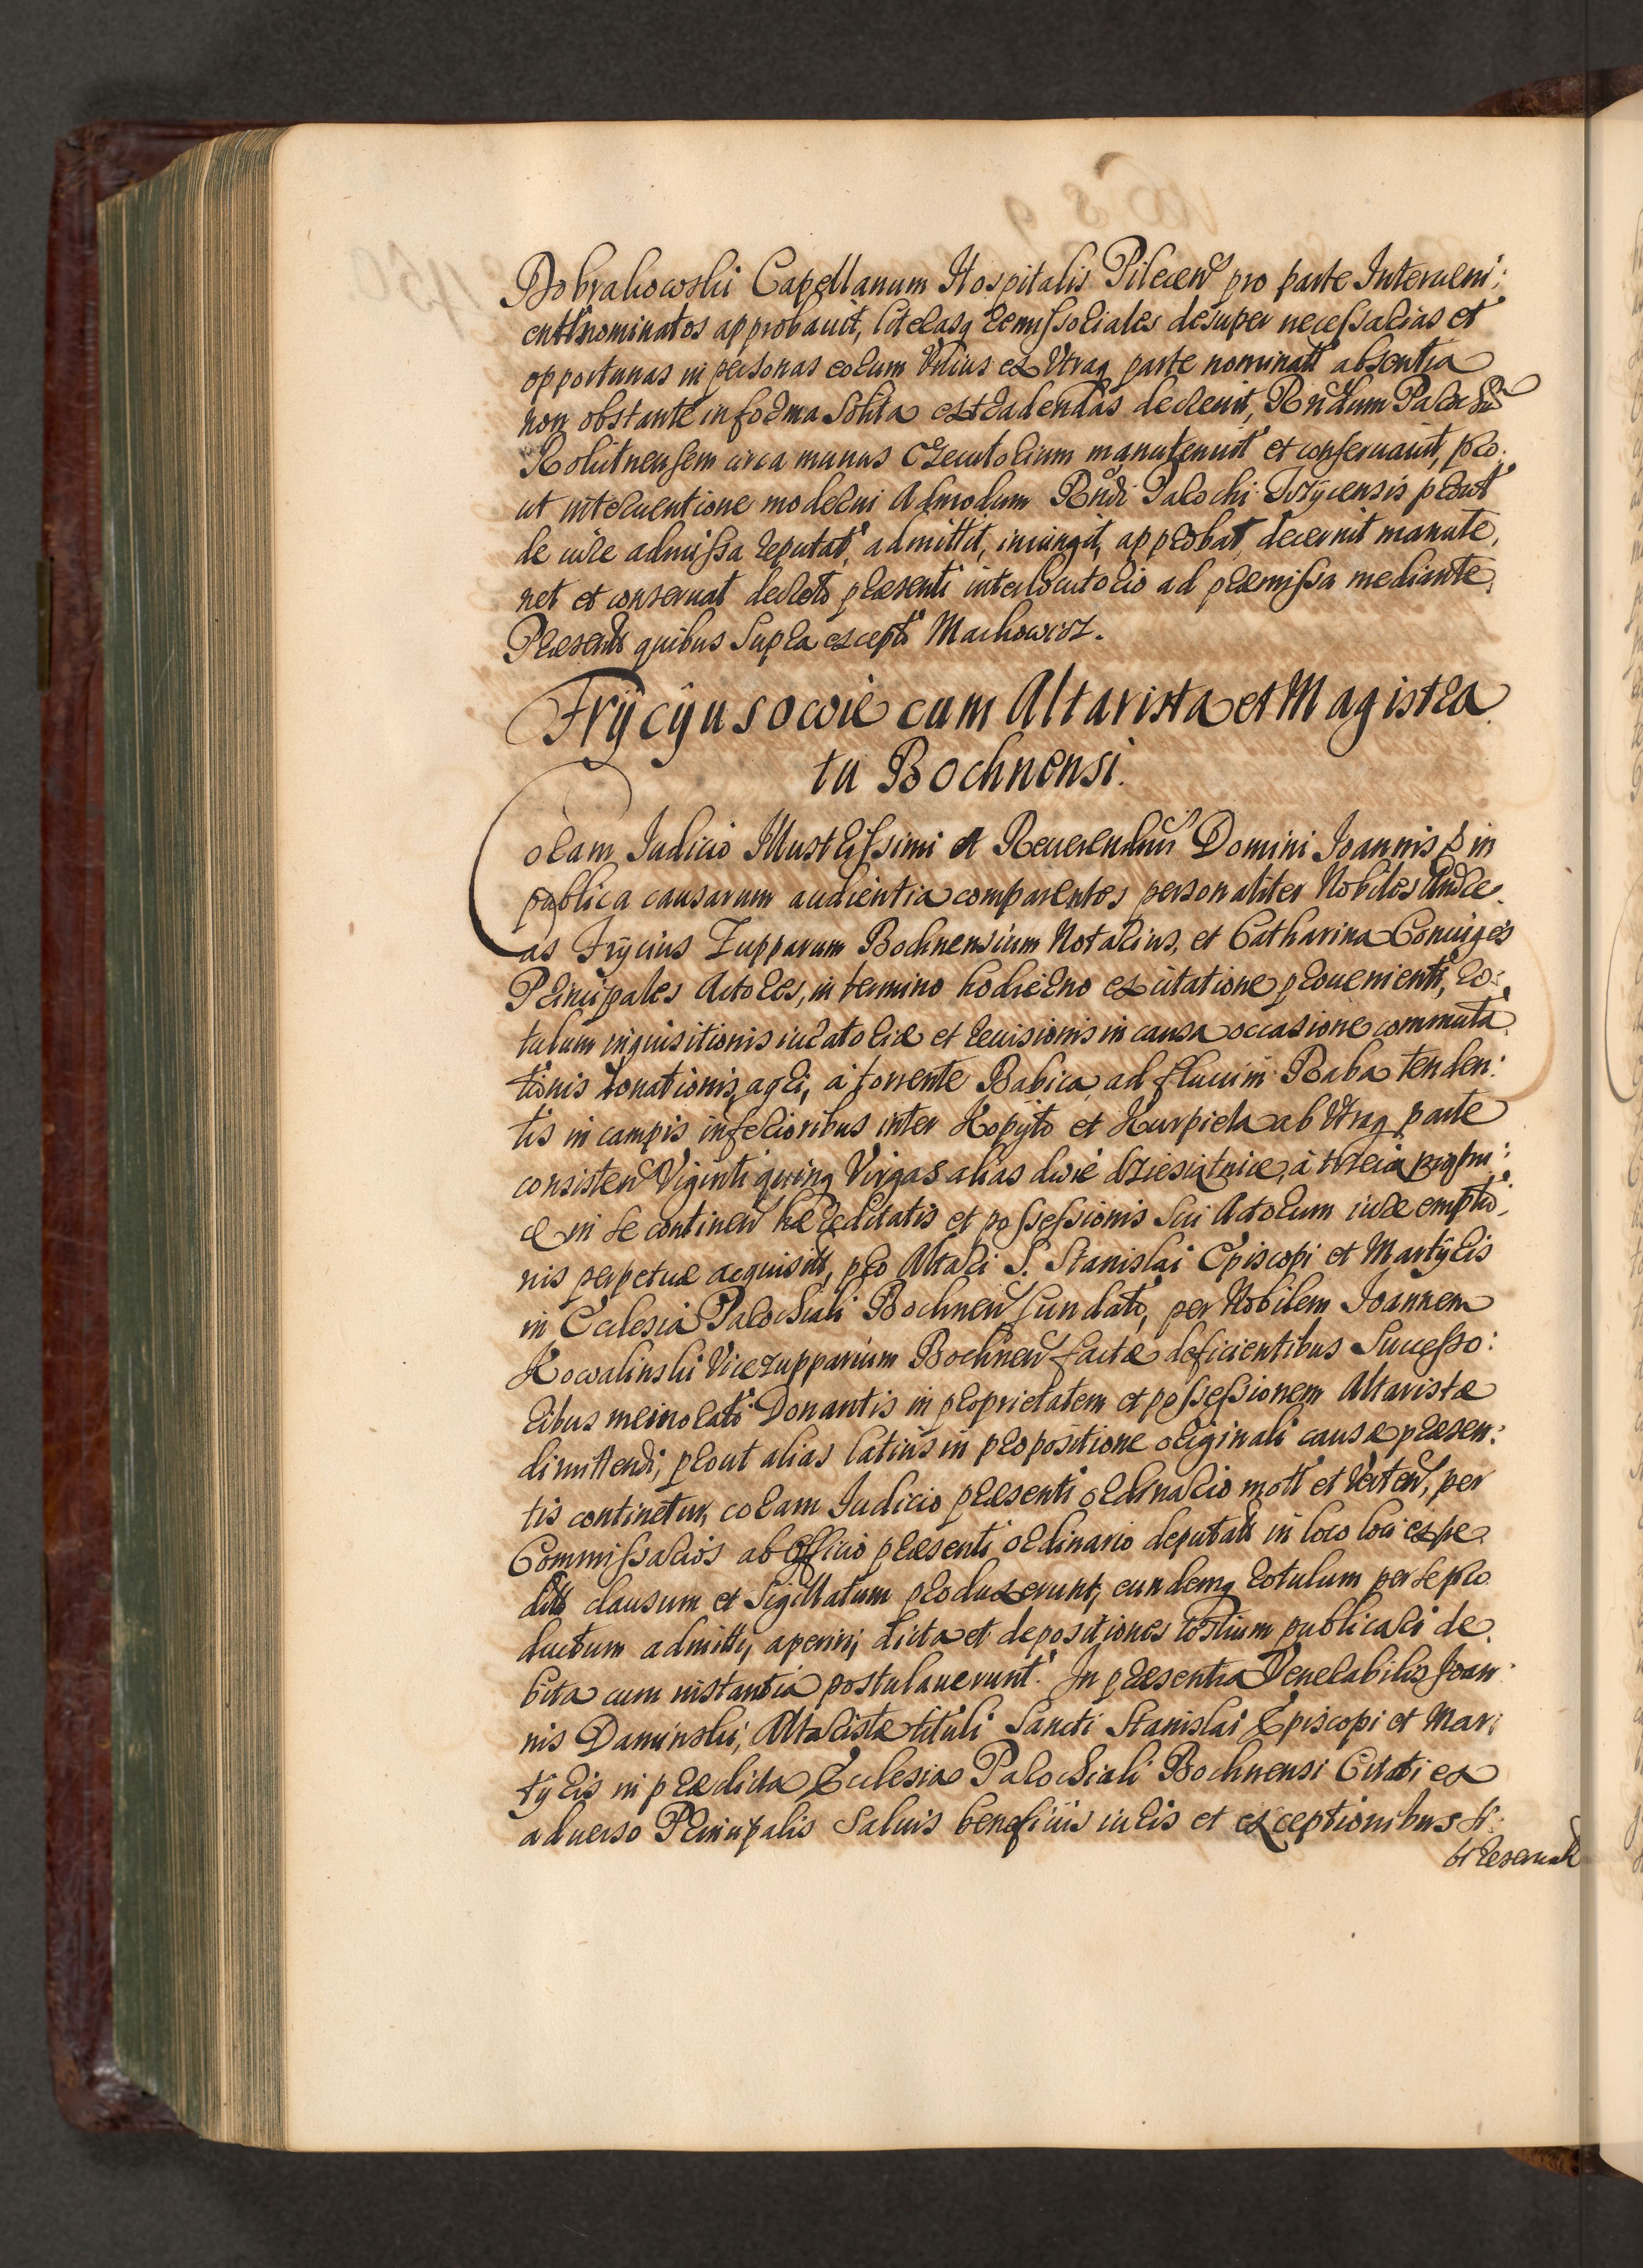 Dobrakowski Capellanum Hospitalis Pilecen pro parte Interueni:
entt nominatos approbauit, literasq remissoriales desuper necessarias et
opportunas in personas eorum Vnius ex Vtraq parte nominatt absentia
non obstante in forma Solita extradendas decreuit, Rndum Paroch
Rokitnensem circa munus Executorium manutenuit et conseruauit, pro:
ut interuentione moderni Admodum Rndi Parochi Trzÿcensis prout
de iure admissa reputat, admittit, iniungit, approbat decernit manute,
net et conseruat decreto præsenti interlocutorio ad præmissa mediante.
Præsentt quibus Supra except Machowicz.
Frÿcÿusowie cum Altarista et Magistra
tu Bochnensi.
Coram Iudicio Illustrissimi et Reuerendmi Domini Ioannis S in
publica causarum audientia comparentes personaliter Nobiles Andre
as Frÿcius Zupparum Bochnensium Notarius, et Catharina Coniuges
Principales Actores, in termino hodierno ex citatione prouenientt, ro:
tulum inquisitionis iuratoriæ et reuisionis in causa occasione commuta
tionis donationis agri, á torrente Babica ad fluuiu Raba tenden:
tis in campis inferioribus inter Kopÿto et Kurpiela ab Vtraq parte
consisten Viginti quinq Virgas alias dwie dziesiątnice, á trzecią
in se continen hæreditatis et possessionis Sui Actorum iure emptio,
nis perpetuæ acquisitt, pro Altari S. Stanislai Episcopi et Martÿris
in Ecclesia Parochiali Bochnen fundato, per Nobilem Joannem
Kowalinski Vicezupparium Bochnen factæ deficientibus Successo:
ribus memorati Donantis in proprietatem et possessionem Altaristæ
dimittendi; prout alias latius in propositione originali causæ præsen:
tis continetur, coram Iudicio præsenti ordinario mott et verten, per
Commissarios ab Officio præsenti ordinario deputatt in loco loci expe
ditt clausum et Sigillatum produxerunt, eundemq rotulum per se pro
ductum admitti, aperiri, dicta et depositiones testium publicari de
bita cum instantia postulauerunt. In præsentia Venerabilis Joan
nis Daminski, Altaristæ tituli Sancti Stanislai Episcopi et Mar:
tÿris in prædicta Ecclesia Parochiali Bochnensi Citati ex
aduerso Principalis Saluis beneficiis iuris et exceptionibus si:
bi reseruatt